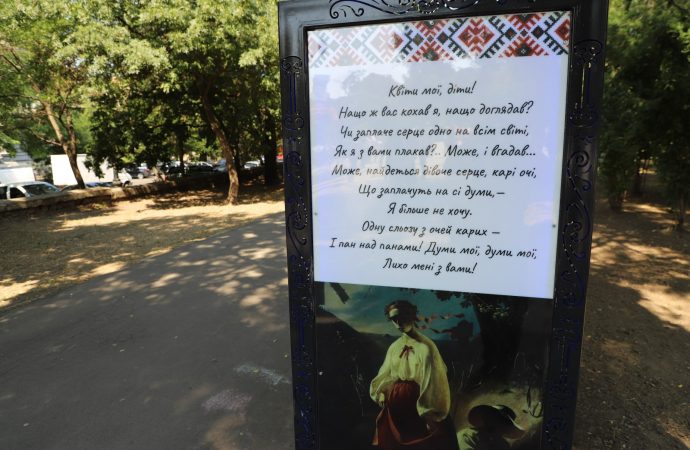 Квіти мої, діти!
Нащо ж вас кохав я, нащо доглядав?
Чи заплаче серце одно на всім світі,
Як я з вами плакав?.. Може, і вгадав...
Може, найдеться дівоче серце, карі очі,
Що заплачуть на сі думи,—
Я більше не хочу.
Одну сльозу з очей карих —
І пан над панами! Думи мої, думи мої,
Лихо мені з вами!